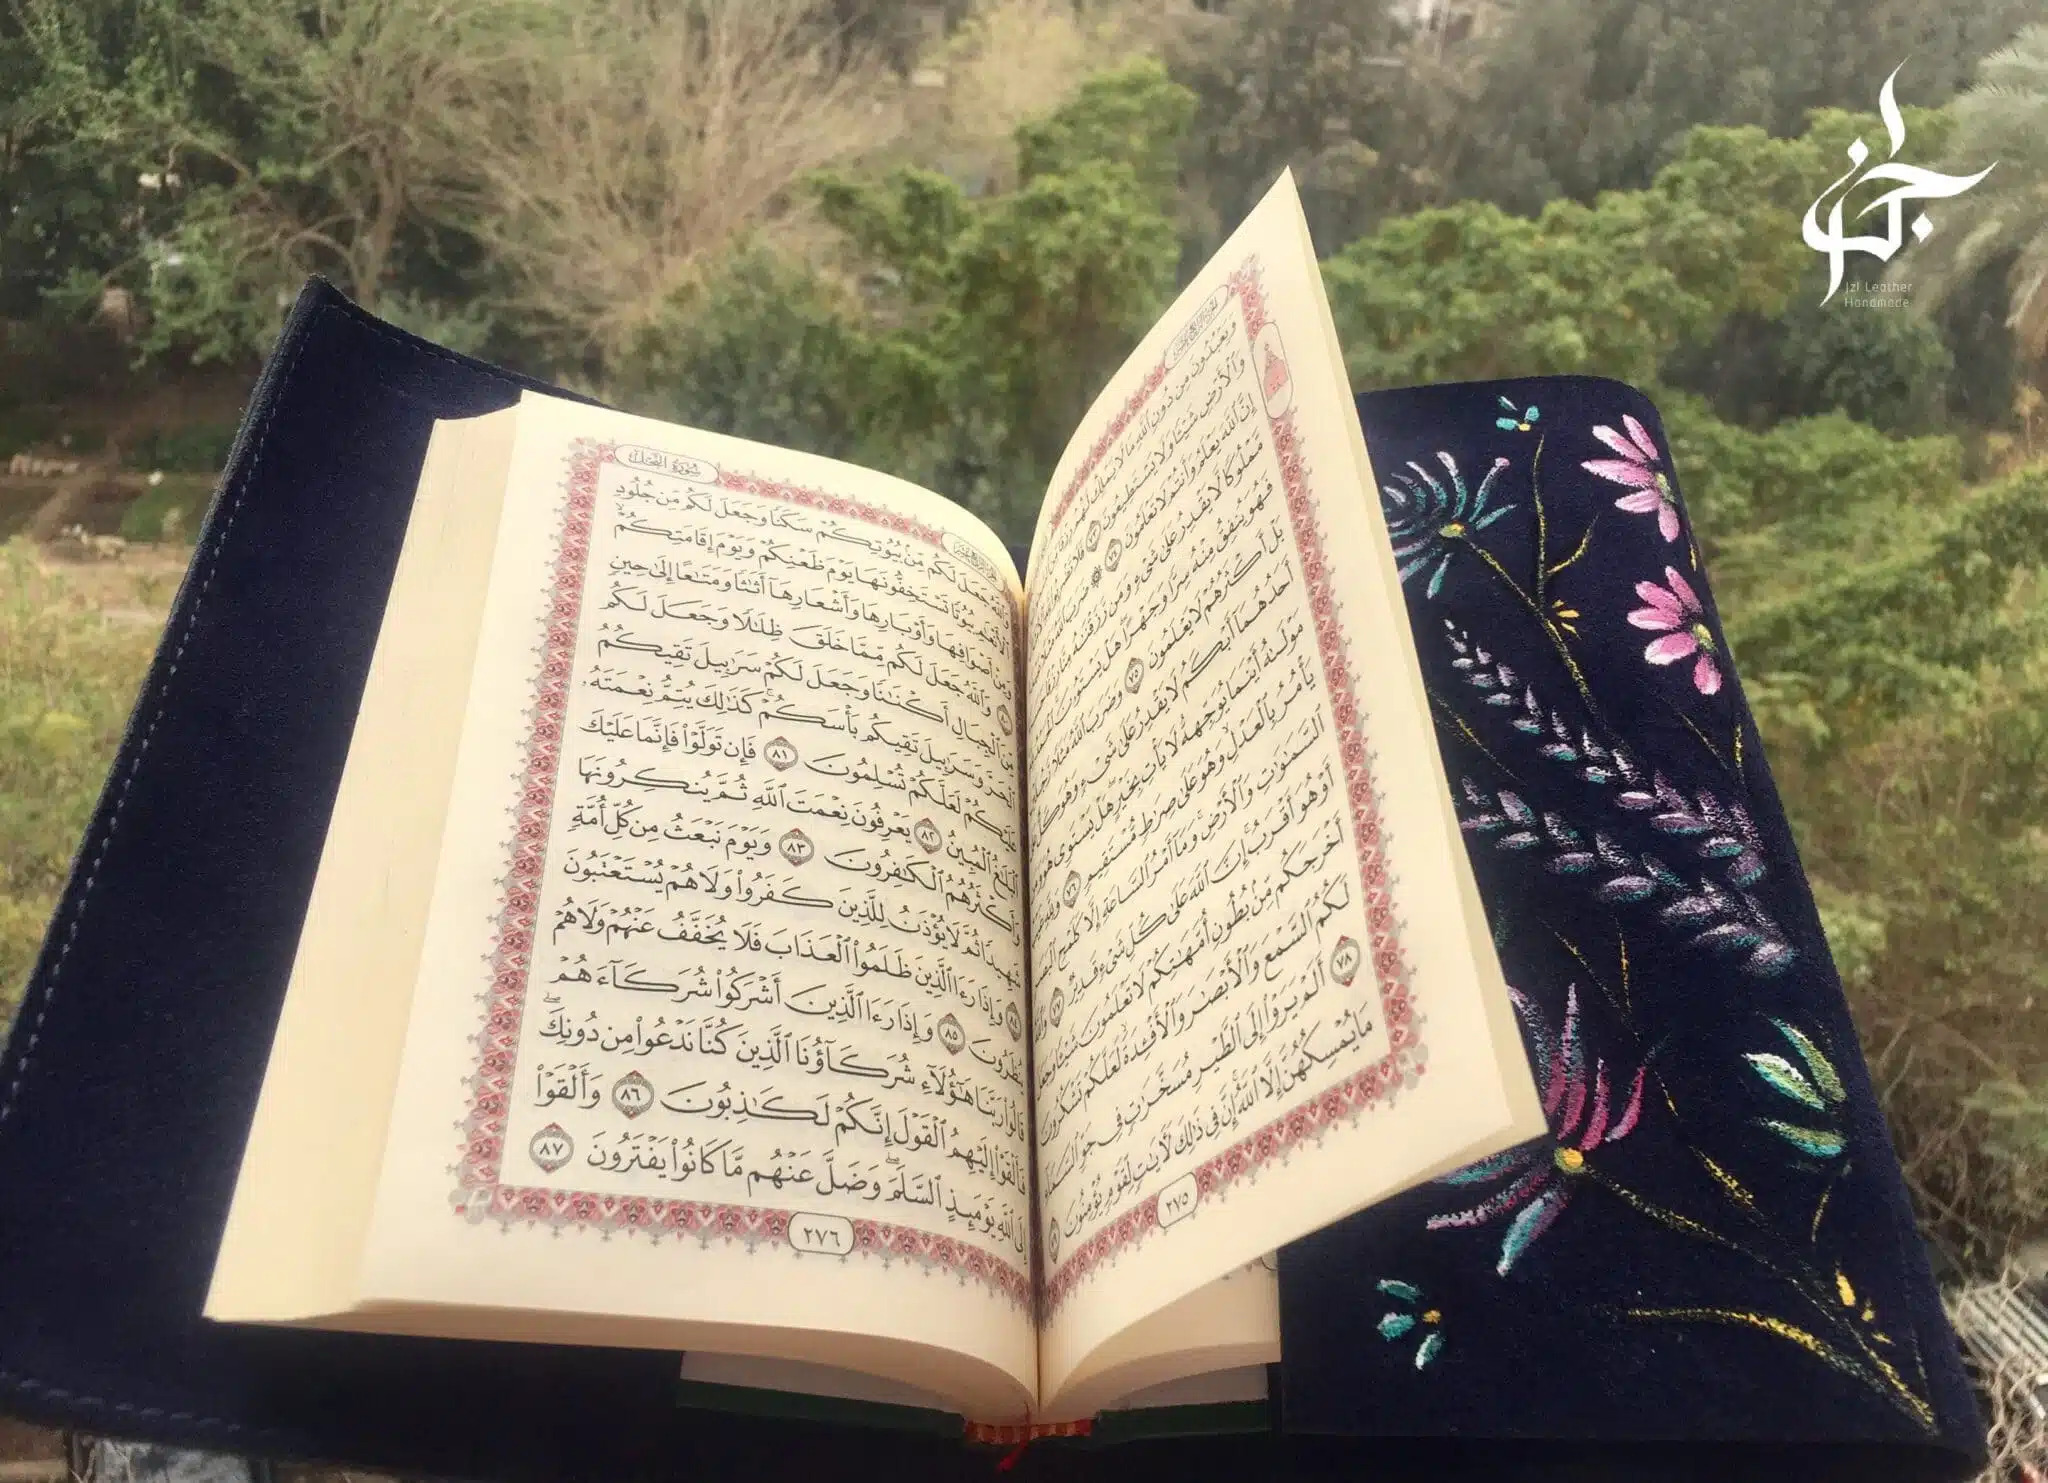 وَيَعْبُدُونَ مِن دُونِ ٱللَّهِ مَا لَا يَمْلِكُ لَهُمْ رِزْقًا
وَٱلْأَرْضِ شَيْـًٔا وَلَا يَسْتَطِيعُونَ ٧٣ فَلَا تَضْرِبُوا۟
إِنَّ ٱللَّهَ يَعْلَمُ وَأَنتُمْ لَا تَعْلَمُونَ ٧٤ ۞ ضَرَبَ ٱللَّهُ
مَّمْلُوكًا لَّا يَقْدِرُ عَلَىٰ شَىْءٍ وَمَن رَّزَقْنَٰهُ مِنَّا رِزْقًا
فَهُوَ يُنفِقُ مِنْهُ سِرًّا وَجَهْرًا هَلْ يَسْتَوُۥنَ
بَلْ أَكْثَرُهُمْ لَا يَعْلَمُونَ ٧٥ وَضَرَبَ ٱللَّهُ مَثَلًا
أَحَدُهُمَآ أَبْكَمُ لَا يَقْدِرُ عَلَىٰ شَىْءٍ وَهُوَ كَلٌّ
مَوْلَىٰهُ أَيْنَمَا يُوَجِّههُّ لَا يَأْتِ بِخَيْرٍ هَلْ يَسْتَوِى هُوَ
يَأْمُرُ بِٱلْعَدْلِ وَهُوَ عَلَىٰ صِرَٰطٍ مُّسْتَقِيمٍ ٧٦ وَلِلَّهِ
ٱلسَّمَٰوَٰتِ وَٱلْأَرْضِ وَمَآ أَمْرُ ٱلسَّاعَةِ إِلَّا كَلَمْحِ ٱلْبَصَرِ
أَوْ هُوَ أَقْرَبُ إِنَّ ٱللَّهَ عَلَىٰ كُلِّ شَىْءٍ قَدِيرٌ ٧٧ وَٱللَّهُ
أَخْرَجَكُم مِّنۢ بُطُونِ أُمَّهَٰتِكُمْ لَا تَعْلَمُونَ شَيْـًٔا وَجَعَلَ
لَكُمُ ٱلسَّمْعَ وَٱلْأَبْصَٰرَ وَٱلْأَفْـِٔدَةَ لَعَلَّكُمْ تَشْكُرُونَ
٧٨ أَلَمْ يَرَوْا۟ إِلَى ٱلطَّيْرِ مُسَخَّرَٰتٍ فِى جَوِّ ٱلسَّمَآءِ
مَا يُمْسِكُهُنَّ إِلَّا ٱللَّهُ إِنَّ فِى ذَٰلِكَ لَءَايَٰتٍ لِّقَوْمٍ يُؤْمِنُونَ
٢٧٥
سُورَةُ النَّحْلِ
وَٱللَّهُ جَعَلَ لَكُم مِّنۢ بُيُوتِكُمْ سَكَنًا وَجَعَلَ لَكُم مِّن جُلُودِ
ٱلْأَنْعَٰمِ بُيُوتًا تَسْتَخِفُّونَهَا يَوْمَ ظَعْنِكُمْ وَيَوْمَ إِقَامَتِكُمْ
وَمِنْ أَصْوَافِهَا وَأَوْبَارِهَا وَأَشْعَارِهَآ أَثَٰثًا وَمَتَٰعًا إِلَىٰ حِينٍ
٨٠ وَٱللَّهُ جَعَلَ لَكُم مِّمَّا خَلَقَ ظِلَٰلًا وَجَعَلَ لَكُم
مِّنَ ٱلْجِبَالِ أَكْنَٰنًا وَجَعَلَ لَكُمْ سَرَٰبِيلَ تَقِيكُمُ
ٱلْحَرَّ وَسَرَٰبِيلَ تَقِيكُم بَأْسَكُمْ كَذَٰلِكَ يُتِمُّ نِعْمَتَهُۥ
عَلَيْكُمْ لَعَلَّكُمْ تُسْلِمُونَ ٨١ فَإِن تَوَلَّوْا۟ فَإِنَّمَا عَلَيْكَ
ٱلْبَلَٰغُ ٱلْمُبِينُ ٨٢ يَعْرِفُونَ نِعْمَتَ ٱللَّهِ ثُمَّ يُنكِرُونَهَا
وَأَكْثَرُهُمُ ٱلْكَٰفِرُونَ ٨٣ وَيَوْمَ نَبْعَثُ مِن كُلِّ أُمَّةٍ
شَهِيدًا ثُمَّ لَا يُؤْذَنُ لِلَّذِينَ كَفَرُوا۟ وَلَا هُمْ يُسْتَعْتَبُونَ
٨٤ وَإِذَا رَءَا ٱلَّذِينَ ظَلَمُوا۟ ٱلْعَذَابَ فَلَا يُخَفَّفُ عَنْهُمْ وَلَا هُمْ
يُنظَرُونَ ٨٥ وَإِذَا رَءَا ٱلَّذِينَ أَشْرَكُوا۟ شُرَكَآءَهُمْ
قَالُوا۟ رَبَّنَا هَٰٓؤُلَآءِ شُرَكَآؤُنَا ٱلَّذِينَ كُنَّا نَدْعُوا۟ مِن دُونِكَ
فَأَلْقَوْا۟ إِلَيْهِمُ ٱلْقَوْلَ إِنَّكُمْ لَكَٰذِبُونَ ٨٦ وَأَلْقَوْا۟
إِلَى ٱللَّهِ يَوْمَئِذٍ ٱلسَّلَمَ وَضَلَّ عَنْهُم مَّا كَانُوا۟ يَفْتَرُونَ ٨٧
٢٧٦
Jzl Leather
Handmade